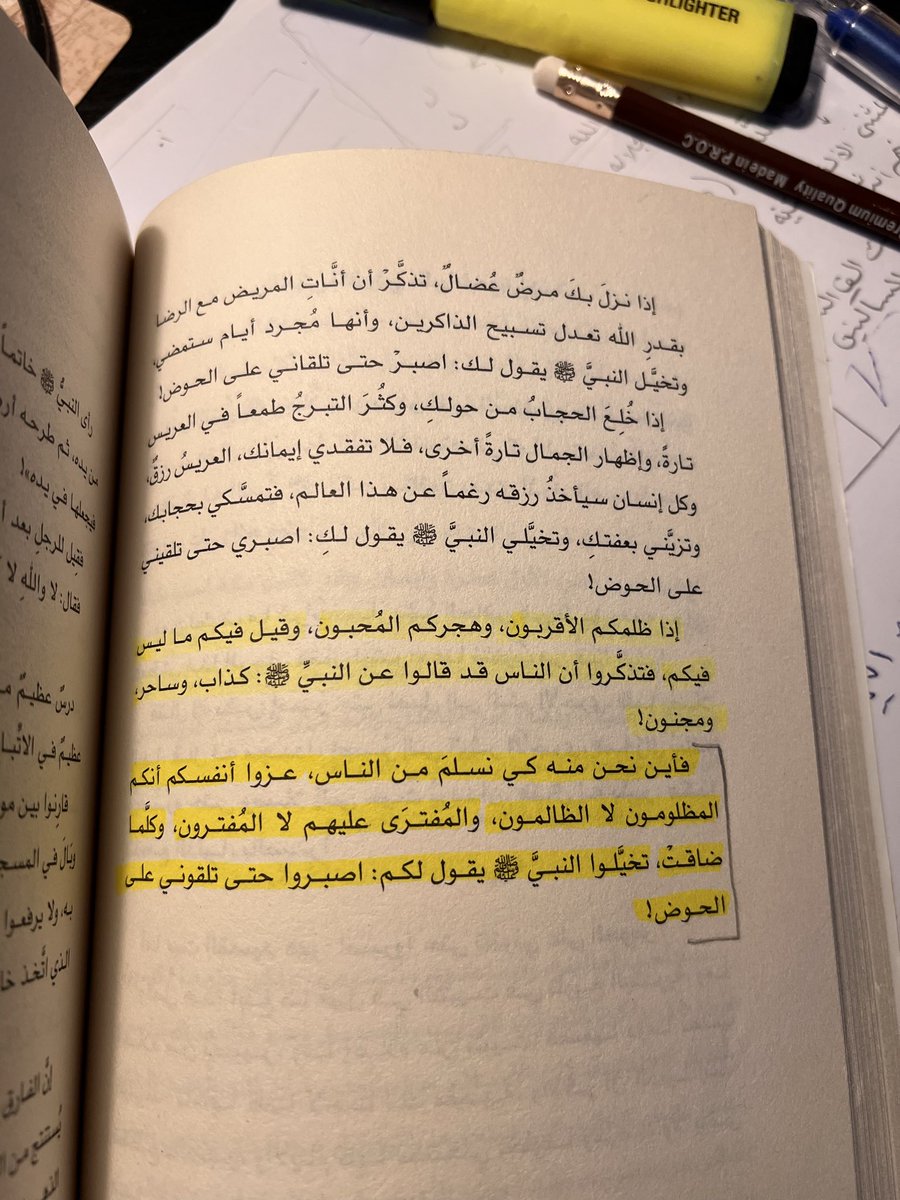 HIGHLIGHTER
Premium Quality Made in P.R.C
إذا نزلَ بكَ مرضٌ عُضالٌ، تذكَّرْ أن أنَّاتِ المريض مع الرضا
بقدرِ الله تعدل تسبيح الذاكرين، وأنها مُجرد أيام ستمضي،
وتخيَّل النبيَّ ﷺ يقول لك: اصبرْ حتى تلقاني على الحوض!
إذا خُلِعَ الحجابُ من حولكِ، وكثُرَ التبرجُ طمعاً في العريس
تارةً، وإظهار الجمال تارةً أخرى، فلا تفقدي إيمانك، العريسُ رزقٌ،
وكل إنسان سيأخذُ رزقه رغماً عن هذا العالم، فتمسَّكي بحجابك،
وتزيَّني بعفتكِ، وتخيَّلي النبيَّ ﷺ يقول لكِ: اصبري حتى تلقيني
على الحوض!
إذا ظلمكم الأقربون، وهجركم المُحبون، وقيل فيكم ما ليس
فيكم، فتذكَّروا أن الناس قد قالوا عن النبيِّ ﷺ: كذاب، وساحر،
ومجنون!
فأين نحن منه كي نسلمَ من الناس، عزوا أنفسكم أنكم
المظلومون لا الظالمون، والمُفترَى عليهم لا المُفترون، وكلَّما
ضاقتْ، تخيَّلوا النبيَّ ﷺ يقول لكم: اصبروا حتى تلقوني على
الحوض!
رأى النبيُّ ﷺ خاتماً
من يده، ثم طرحه
فيجعلها في يده»!
فقيل للرجلِ بعد
فقال: لا واللهِ لا
درسٌ عظيمٌ
عظيمٌ في
قارِنوا بين
وبَالَ في
به، ولا يرفعوا
الذي اتَّخذ
إنَّ الفارق
يُستنتج من